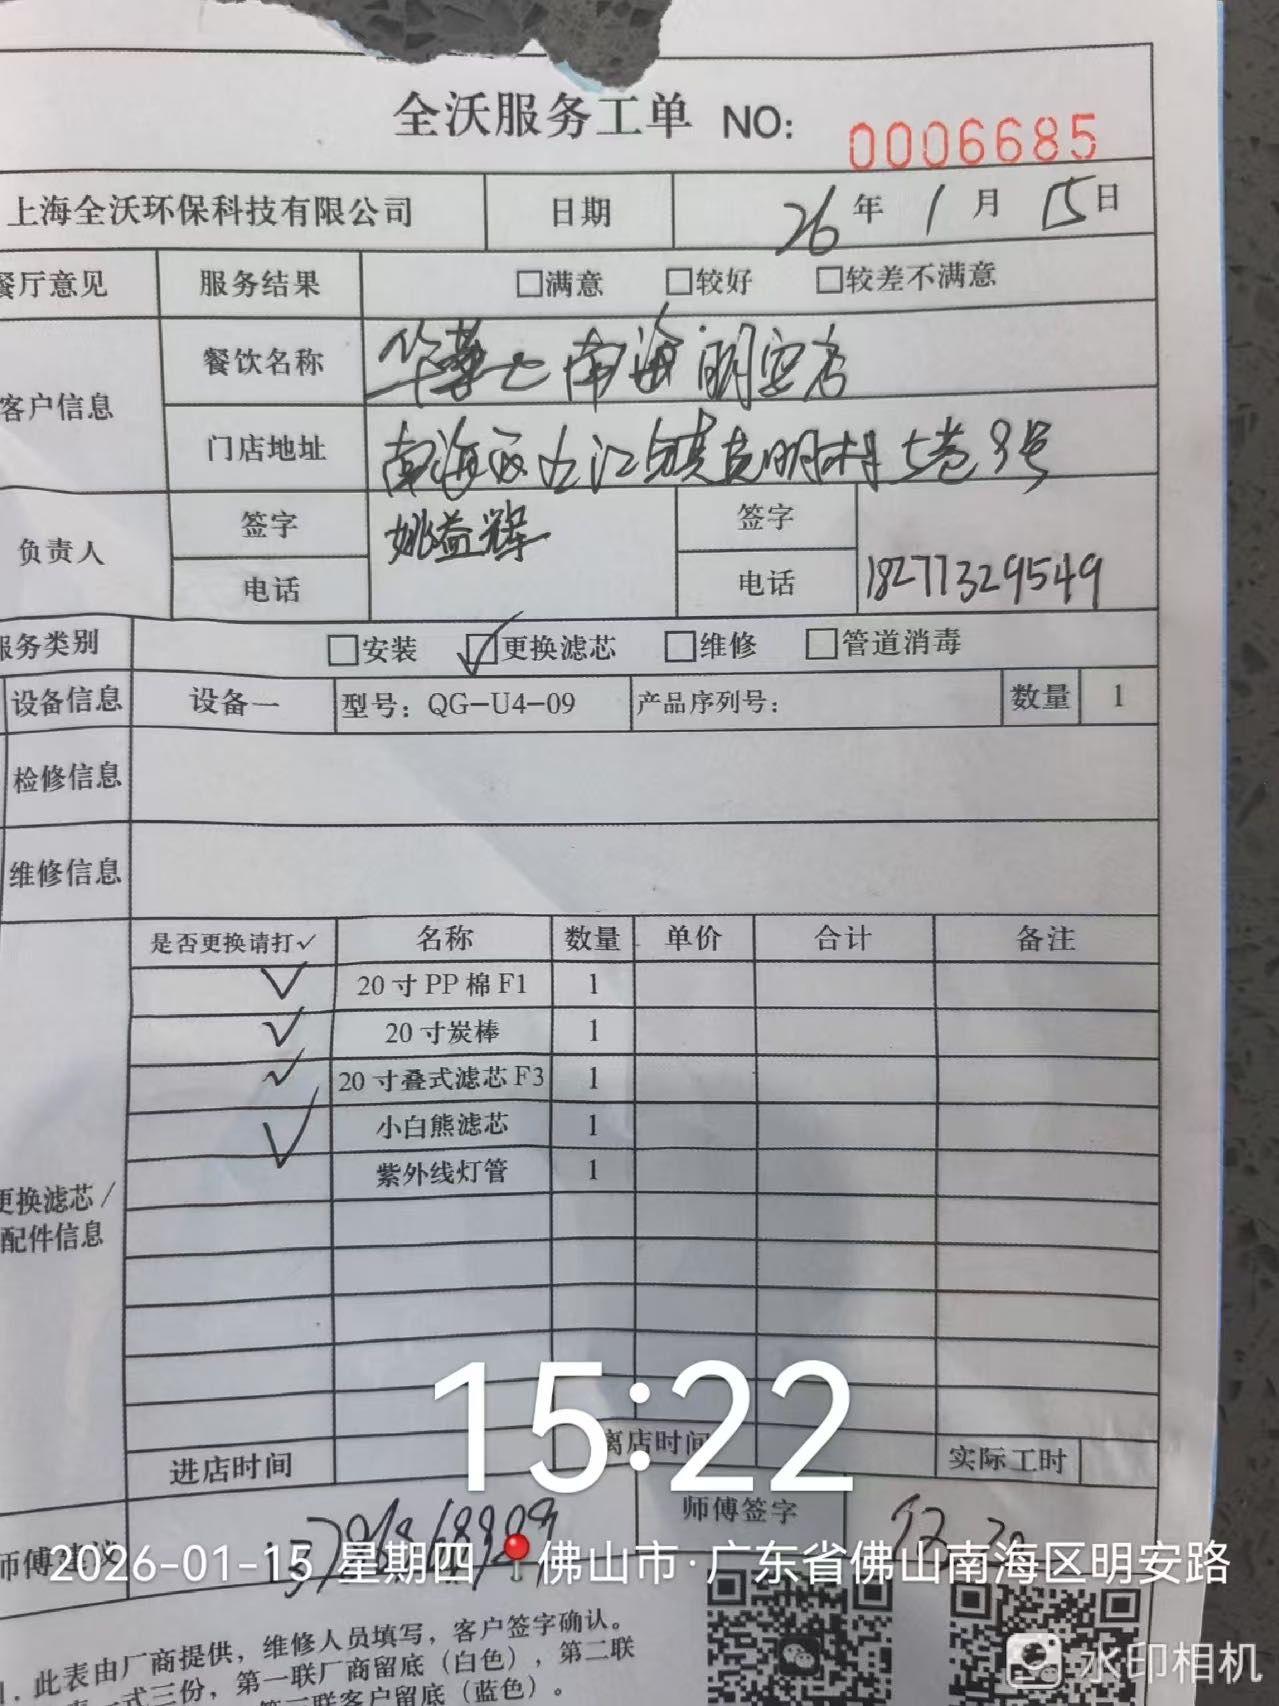 全沃服务工单 NO: 0006685
上海全沃环保科技有限公司 日期 26年 1月 15日
餐厅意见 服务结果 □满意 □较好 □较差不满意
客户信息 餐饮名称 华莱士南海明安店
门店地址 南海区九江镇 明村 巷 号
负责人 签字 姚益辉 签字
电话 电话 18277329549
服务类别 □安装 ☑更换滤芯 □维修 □管道消毒
设备信息 设备一 型号：QG-U4-09 产品序列号： 数量 1
检修信息
维修信息
更换滤芯/配件信息
是否更换请打✓ 名称 数量 单价 合计 备注
✓ 20寸PP棉F1 1
✓ 20寸炭棒 1
✓ 20寸叠式滤芯F3 1
✓ 小白熊滤芯 1
紫外线灯管 1
进店时间 离店时间 实际工时
15:22
师傅建议 师傅签字
2026-01-15 星期四 佛山市·广东省佛山南海区明安路
1. 此表由厂商提供，维修人员填写，客户签字确认。
一式三份，第一联厂商留底（白色），第二联
联客户留底（蓝色）。
水印相机